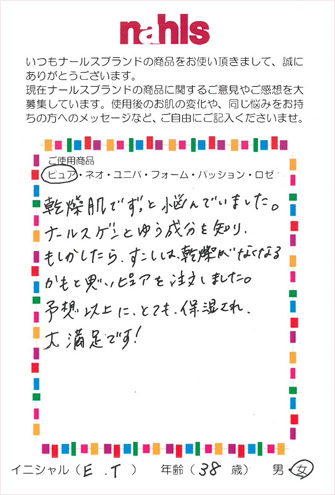 nahls
いつもナールスブランドの商品をお使い頂きまして、誠に
ありがとうございます。
現在ナールスブランドの商品に関するご意見やご感想を大
募集しています。使用後のお肌の変化や、同じ悩みをお持
ちの方へのメッセージなど、ご自由にご記入くださいませ。
ご使用商品
ピュア・ネオ・ユニバ・フォーム・パッション・ロゼ
乾燥肌でずっと悩んでいました。
ナールスゲンとゆう成分を知り、
もしかしたら、すこしは、乾燥がなくなる
かもと思い、ピュアを注文しました。
予想以上に、とても、保湿され、
大満足です!
イニシャル（E.T） 年齢（38歳） 男・女